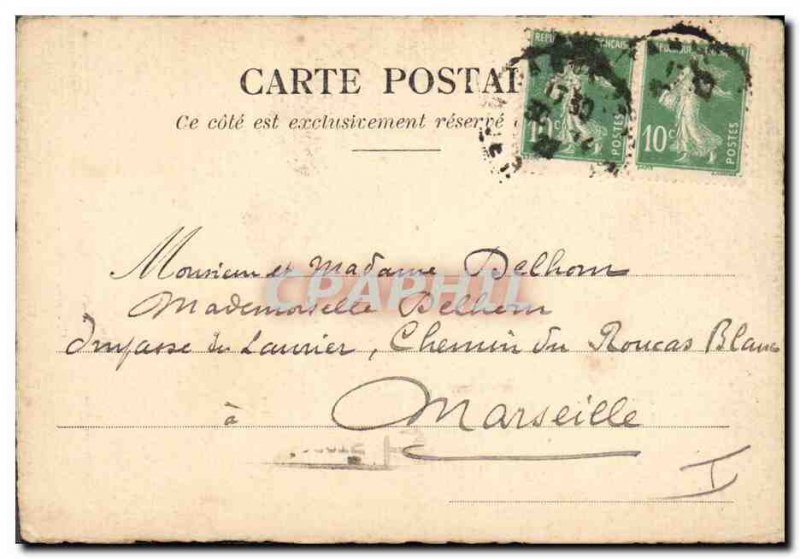 CARTE POSTAL
Ce côté est exclusivement réservé
RÉPUBLIQUE FRANÇAISE
10c POSTES
10c POSTES
17 30
Monsieur et Madame Delhom
Mademoiselle Delhom
CPAPHIL
Impasse du Laurier, Chemin du Roucas Blanc
à Marseille
I